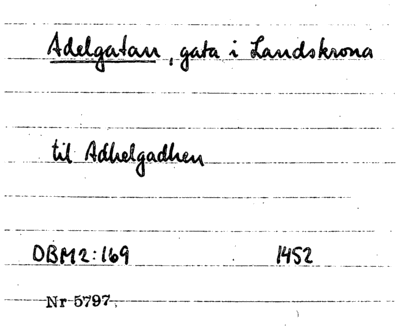 Adelgatan, gata i Landskrona
til Adhelgadhen
DBM2:169 1452
Nr 5797.